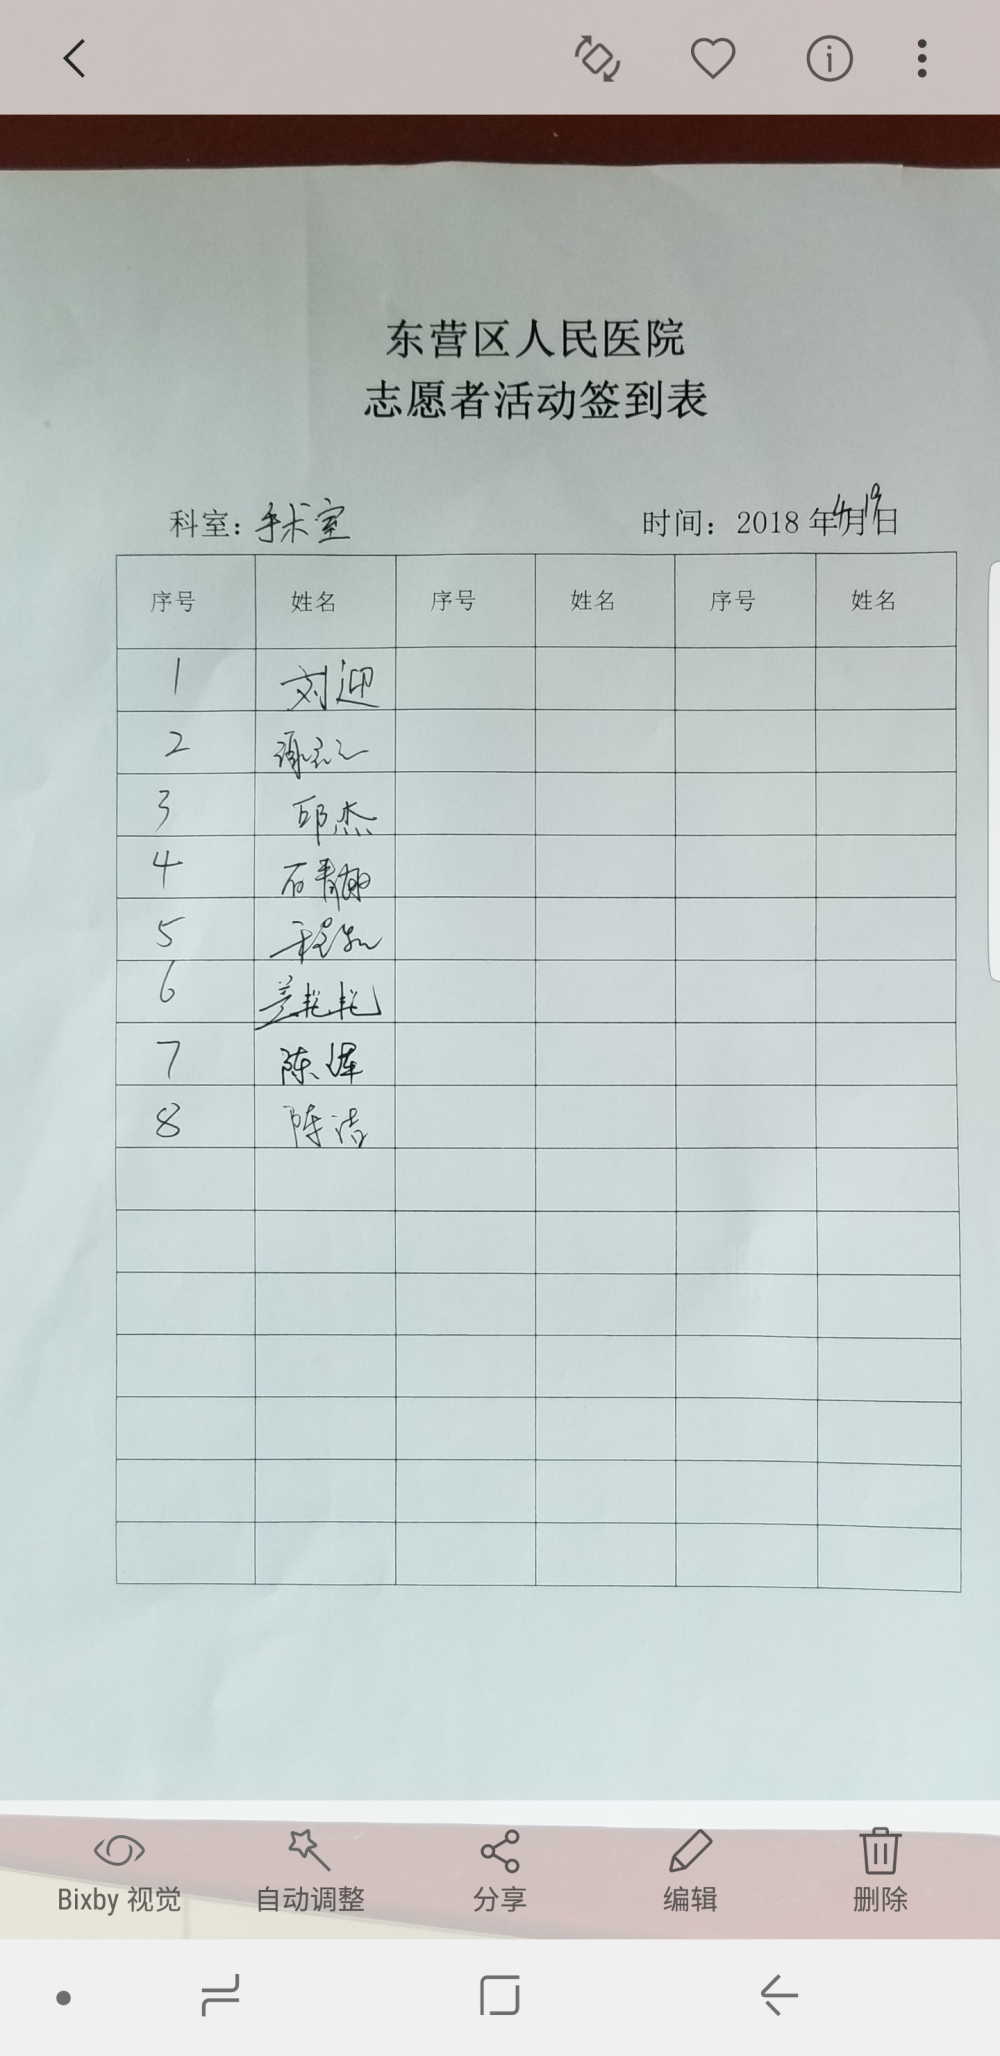 东营区人民医院
志愿者活动签到表
科室：手术室 时间：2018 年4月19日
序号 姓名 序号 姓名 序号 姓名
1 刘迎
2
3 邱杰
4 石青
5 程
6 兰艳艳
7 陈晖
8 陈洁
Bixby 视觉 自动调整 分享 编辑 删除